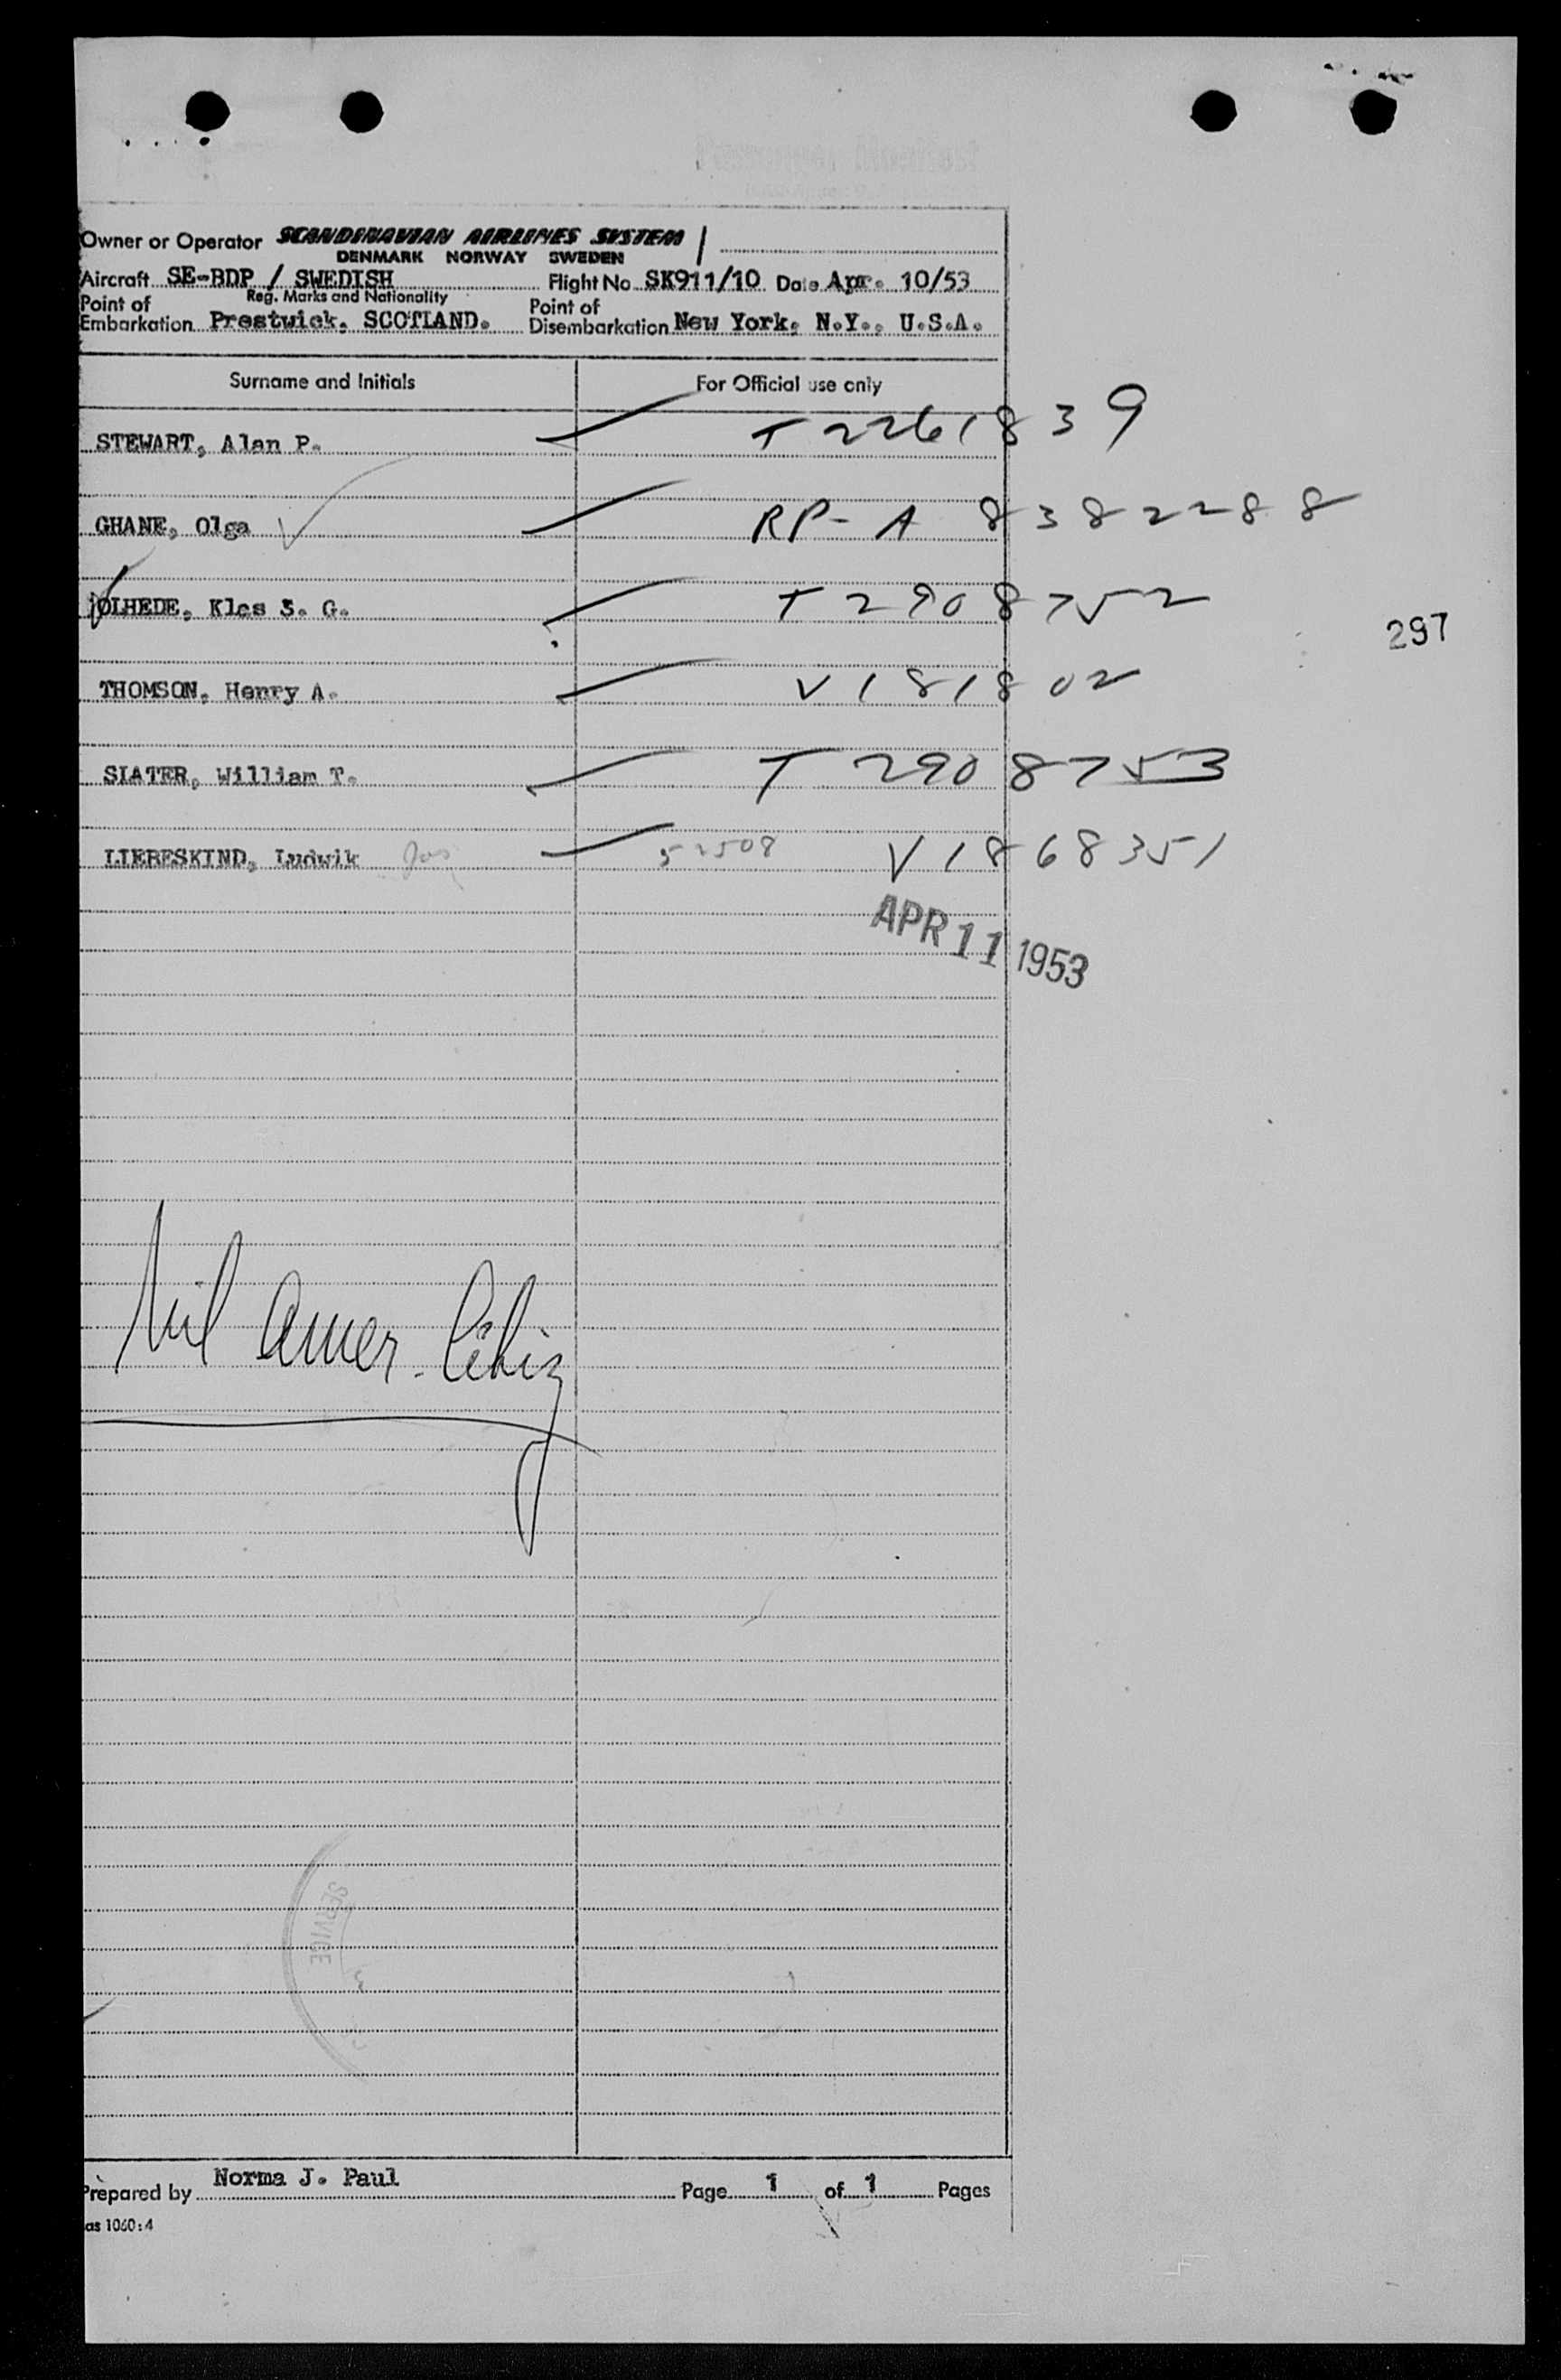 Owner or Operator SCANDINAVIAN AIRLINES SYSTEM
DENMARK NORWAY SWEDEN
Aircraft SE-BDP / SWEDISH Flight No. SK911/10 Date Apr. 10/53
Reg. Marks and Nationality
Point of Embarkation Prestwick, SCOTLAND. Point of Disembarkation New York, N.Y., U.S.A.
Surname and Initials For Official use only
STEWART, Alan P. T 2261839
GHANE, Olga RP-A 8382288
OLHEDE, Klas S. G. T 2908752
297
THOMSON, Henry A. V 181802
SLATER, William T. T 2908753
LIEBESKIND, Ludwik 52508 V 1868351
APR 11 1953
Nil Amer. Citiz
SERVICE
Prepared by Norma J. Paul Page 1 of 1 Pages
as 1060:4